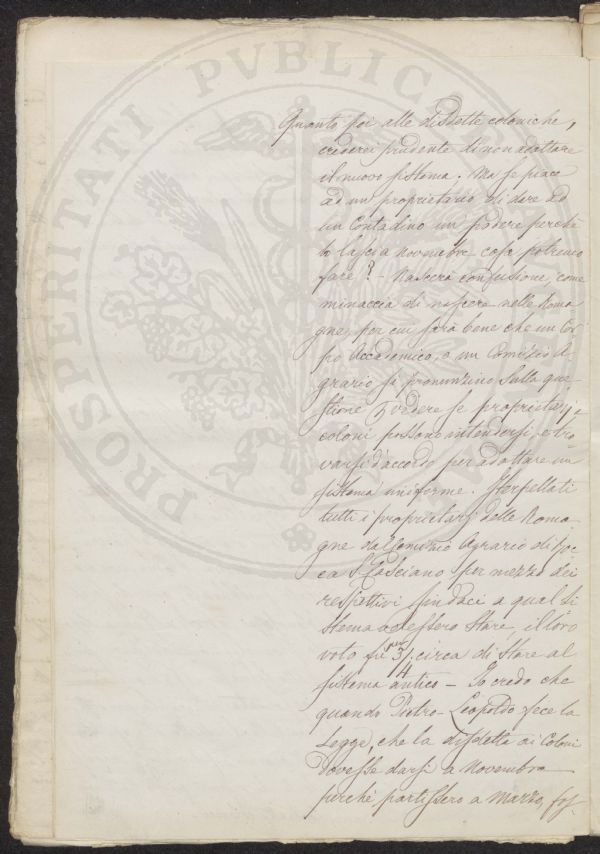 PROSPERITATI PUBLICAE
Quanto poi alle disdette coloniche,
crederei prudente di non adottare
il nuovo sistema. Ma se piace
ad un proprietario di dare ad
un Contadino un podere perchè
lo lasci a novembre cosa potremo
fare? - Nascerà confusione, come
minaccia di nascere nelle Roma
gne, per cui sarà bene che un Cor
po Accademico, o un Comizio A
grario si pronunzino sulla que
stione e vedere se proprietarj, e
coloni possono intendersi, e tro
varsi d'accordo per adottare un
sistema uniforme. Iterpellati
tutti i proprietarj delle Roma
gne dal Comizio Agrario di Roc
ca S. Casciano per mezzo dei
respettivi sindaci a qual si
stema volessero stare, il loro
voto fù per 3/4 circa di stare al
sistema antico - Io credo che
quando Pietro Leopoldo fece la
Legge, che la disdetta ai Coloni
dovesse darsi a Novembre
perchè partissero a Marzo, fos-